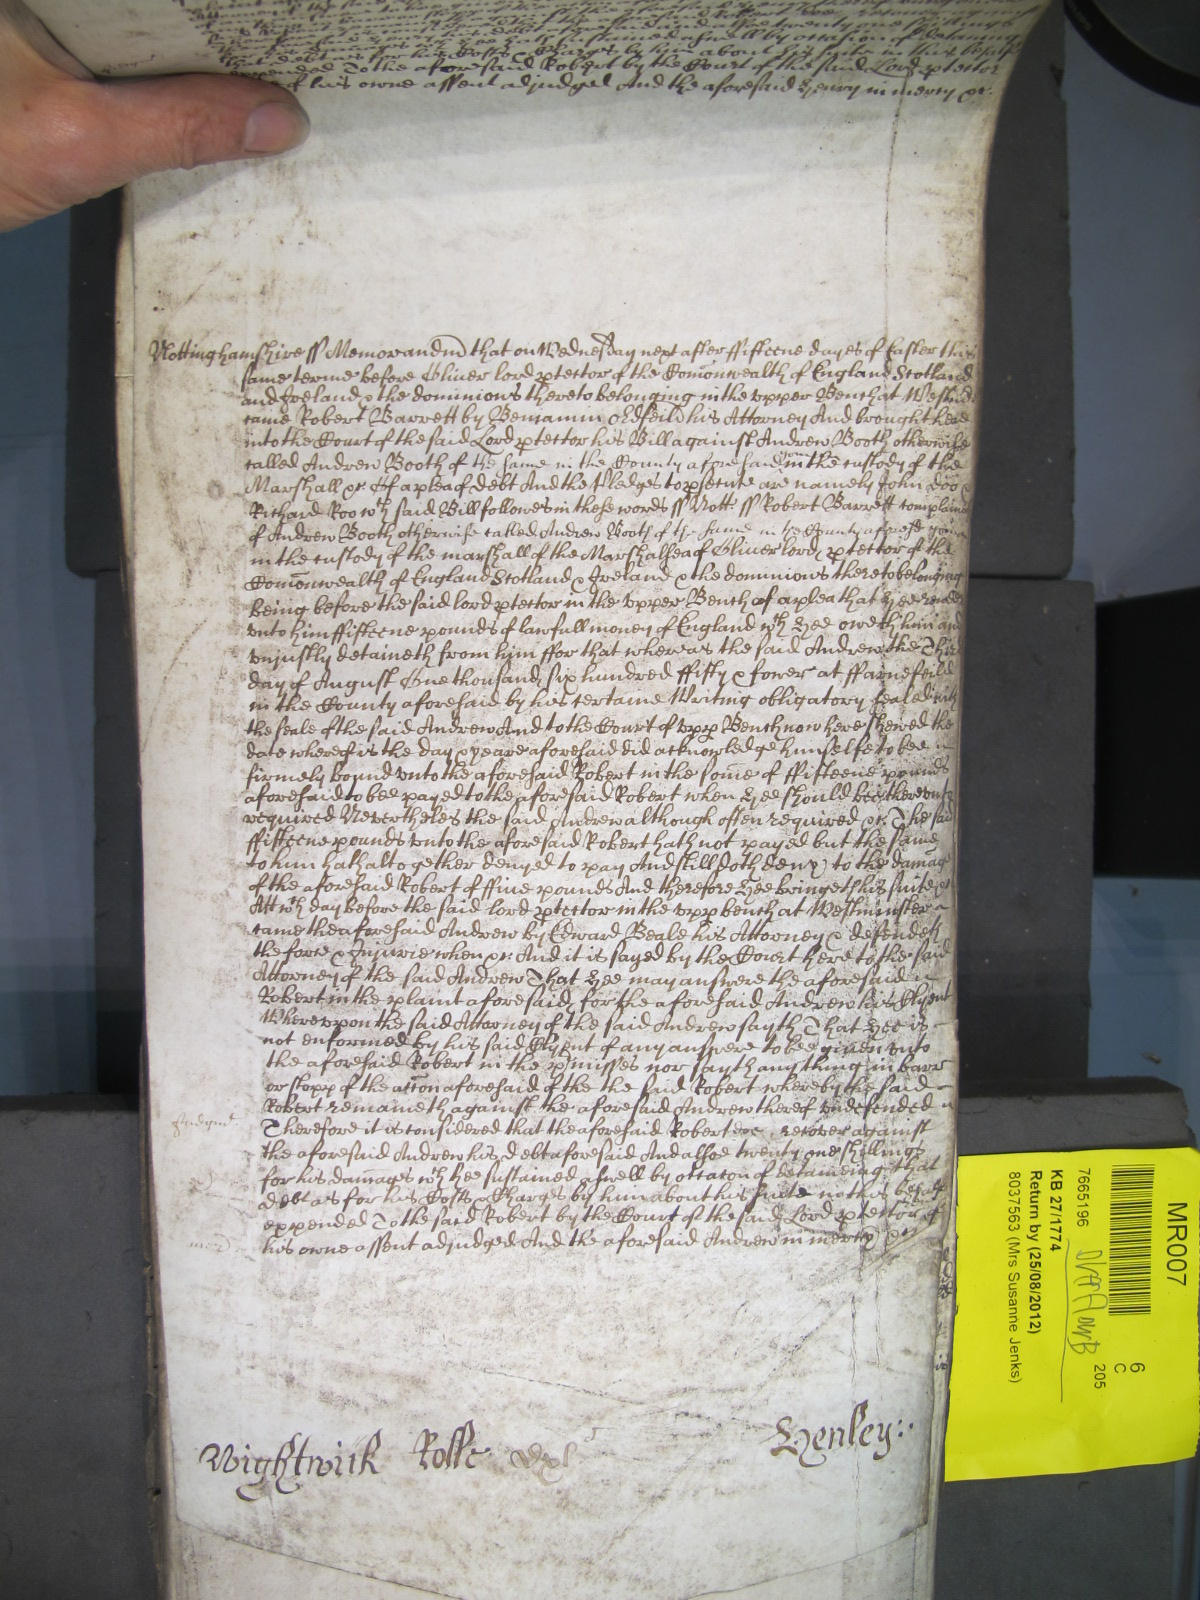 that debt as for his Costs & Charges by him about his suite in this behalfe
expended To the aforesaid Robert by the Court of the said Lord ptector
of his owne assent adjudged And the aforesaid Henry in mercy &c:
Nottinghamshire ss Memorandum that on Wednesday next after ffifteene dayes of Easter this
same terme before Oliver lord ptector of the Comonwealth of England Scotland
and Ireland & the dominions thereto belonging in the vpper Bench at Westm
came Robert Barrett by Beniamin Oldfeild his Attorney And brought here
into the Court of the said Lord ptector his Bill against Andrew Booth otherwise
called Andrew Booth of the same in the County aforesaid yeom in the custody of the
Marshall &c Of a plea of debt And the Pledges to psecute are namely John Doo &
Richard Roo wch said Bill followes in these words ss Nott ss Robert Barrett complaines
of Andrew Booth otherwise called Andrew Booth of the same in the County aforesd yeom
in the custody of the marshall of the Marshallsea of Oliver lord ptector of the
Comonwealth of England Scotland & Ireland & the dominions thereto belonging
being before the said lord ptector in the vpper Bench of a plea that hee render
vnto him ffifteene pounds of lawfull money of England wch hee oweth him and
vnjustly detaineth from him ffor that whereas the said Andrew the Third
day of August One thousand six hundred ffifty & fower at ffarnefeild
in the County aforesaid by his certaine Writing obligatory sealed with
the seale of the said Andrew And to the Court of vpp Bench now here shewed the
date whereof is the day & yeare aforesaid did acknowledge himselfe to bee
firmely bound vnto the aforesaid Robert in the some of ffifteene pounds
aforesaid to bee payed to the aforesaid Robert when hee should bee therevnto
required Nevertheles the said Andrew although often required &c The said
ffifteene pounds vnto the aforesaid Robert hath not payed but the same
to him hath altogether denyed to pay And still doth deny to the damage
of the aforesaid Robert of ffiue pounds And therefore hee bringeth his suite &c
Att wch day before the said lord ptector in the vpp bench at Westminster
came the aforesaid Andrew by Edward Beale his Attorney & defendeth
the force & Injurie when &c And it is sayed by the Court here to the said
Attorney of the said Andrew That hee may answere the aforesaid
Robert in the plaint aforesaid for the aforesaid Andrew his Clyent
Wherevpon the said Attorney of the said Andrew sayth That hee is
not enformed by his said Clyent of any answere to bee given vnto
the aforesaid Robert in the pmisses nor sayth any thing in barr
or stopp of the accon aforesaid of the the said Robert whereby the said
Robert remaineth against the aforesaid Andrew thereof vndefended
Judgmt
Therefore it is considered that the aforesaid Robert doe recover against
the aforesaid Andrew his debt aforesaid And alsoe twenty one shillings
for his damages wch hee sustained aswell by occacon of detaineing that
debt as for his Costs & Charges by him about his suite in this behalfe
expended To the said Robert by the Court of the said Lord ptector of
mercy
his owne assent adjudged And the aforesaid Andrew in mercy &c
Wightwick Rolle
Henley:
MR007
7665196
6
C
205
KB 27/1774
Return by (25/08/2012)
8037563 (Mrs Susanne Jenks)